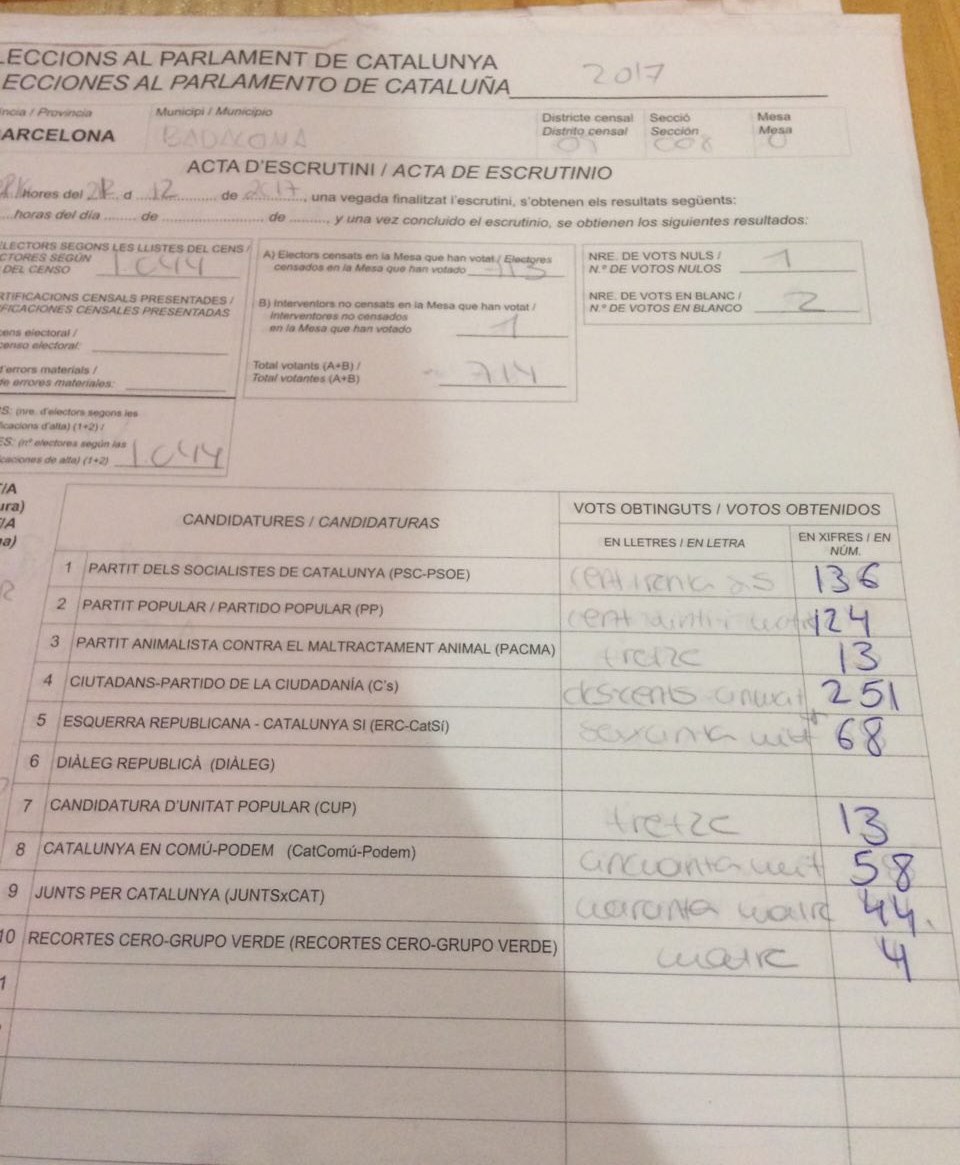 LECCIONS AL PARLAMENT DE CATALUNYA
ECCIONES AL PARLAMENTO DE CATALUÑA 2017
ncia / Provincia Municipi / Municipio Districte censal Secció Mesa
Distrito censal Sección Mesa
ARCELONA BADALONA
ACTA D'ESCRUTINI / ACTA DE ESCRUTINIO
hores del d 12 de 2017, una vegada finalitzat l'escrutini, s'obtenen els resultats següents:
horas del día de de , y una vez concluido el escrutinio, se obtienen los siguientes resultados:
ELECTORS SEGONS LES LLISTES DEL CENS /
CTORES SEGÚN
DEL CENSO 1.044
RTIFICACIONS CENSALS PRESENTADES /
IFICACIONES CENSALES PRESENTADAS
cens electoral /
censo electoral:
d'errors materials /
de errores materiales:
S: (nre. d'electors segons les
ficacions d'alta) (1+2) /
ES: (nº electores según las
caciones de alta) (1+2) 1.044
A) Electors censats en la Mesa que han votat / Electores
censados en la Mesa que han votado 713
B) Interventors no censats en la Mesa que han votat /
Interventores no censados
en la Mesa que han votado 1
Total votants (A+B) /
Total votantes (A+B) 714
NRE. DE VOTS NULS /
N.º DE VOTOS NULOS 1
NRE. DE VOTS EN BLANC /
N.º DE VOTOS EN BLANCO 2
/A
ura)
/A
a)
CANDIDATURES / CANDIDATURAS
VOTS OBTINGUTS / VOTOS OBTENIDOS
EN LLETRES / EN LETRA
EN XIFRES / EN
NÚM.
1 PARTIT DELS SOCIALISTES DE CATALUNYA (PSC-PSOE) 136
2 PARTIT POPULAR / PARTIDO POPULAR (PP) 124
3 PARTIT ANIMALISTA CONTRA EL MALTRACTAMENT ANIMAL (PACMA) tretze 13
4 CIUTADANS-PARTIDO DE LA CIUDADANÍA (C's) 251
5 ESQUERRA REPUBLICANA - CATALUNYA SI (ERC-CatSí) 68
6 DIÀLEG REPUBLICÀ (DIÀLEG)
7 CANDIDATURA D'UNITAT POPULAR (CUP) tretze 13
8 CATALUNYA EN COMÚ-PODEM (CatComú-Podem) cincuanta uit 58
9 JUNTS PER CATALUNYA (JUNTSxCAT) 44.
10 RECORTES CERO-GRUPO VERDE (RECORTES CERO-GRUPO VERDE) 4
1